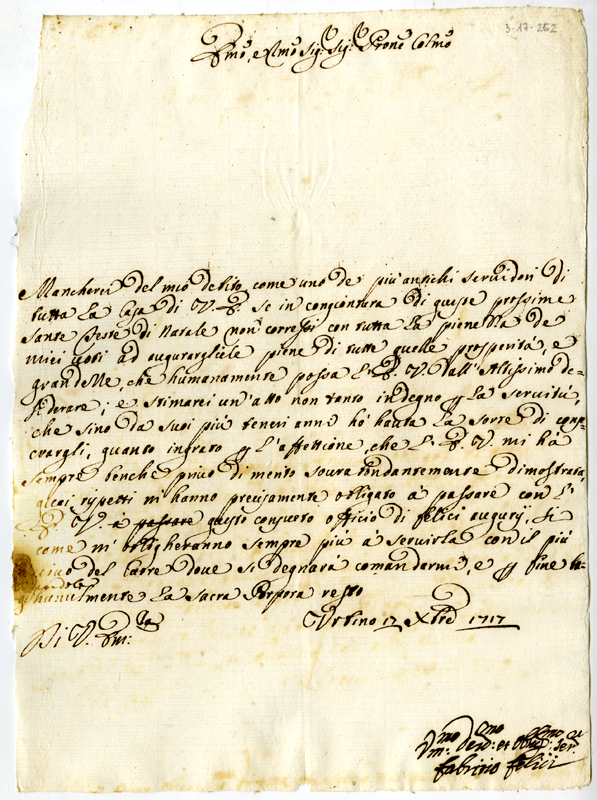 3-17-262
Emo, e Rmo Sig: Sig: Prone Colmo
Mancherei del mio debito come uno de più antichi servidori di
tutta la Casa di V. E. se in congiontura di queste prossime
Sante Feste di Natale non corressi con tutta la pienezza de
miei voti ad augurargliele piene di tutte quelle prosperità, e
grandezze, che humanamente possa l'E. V. dall'Altissimo de=
siderare; e stimarei un'atto non tanto indegno la servitù,
che sino da suoi più teneri anni hò hauta la sorte di con=
cragli, quanto ingrato l'affettione, che l'E. V. mi hà
sempre benche privo di merito soura bondantemente dimostrata,
quai rispetti m'hanno precisamente obligato à passare con l'
E. V. è passare questo consueto officio di felici augurij, si
come m'obligheranno sempre più à servirla con il più
vivo del Cuore dove si degnarà comandarmi, e fine ba=
humilmente la Sacra Porpora resto
Di V. Em: za
Urbino 12 Xbre 1717
Vmo Devo: et Obligo: Ser. re
Fabrizio Felici